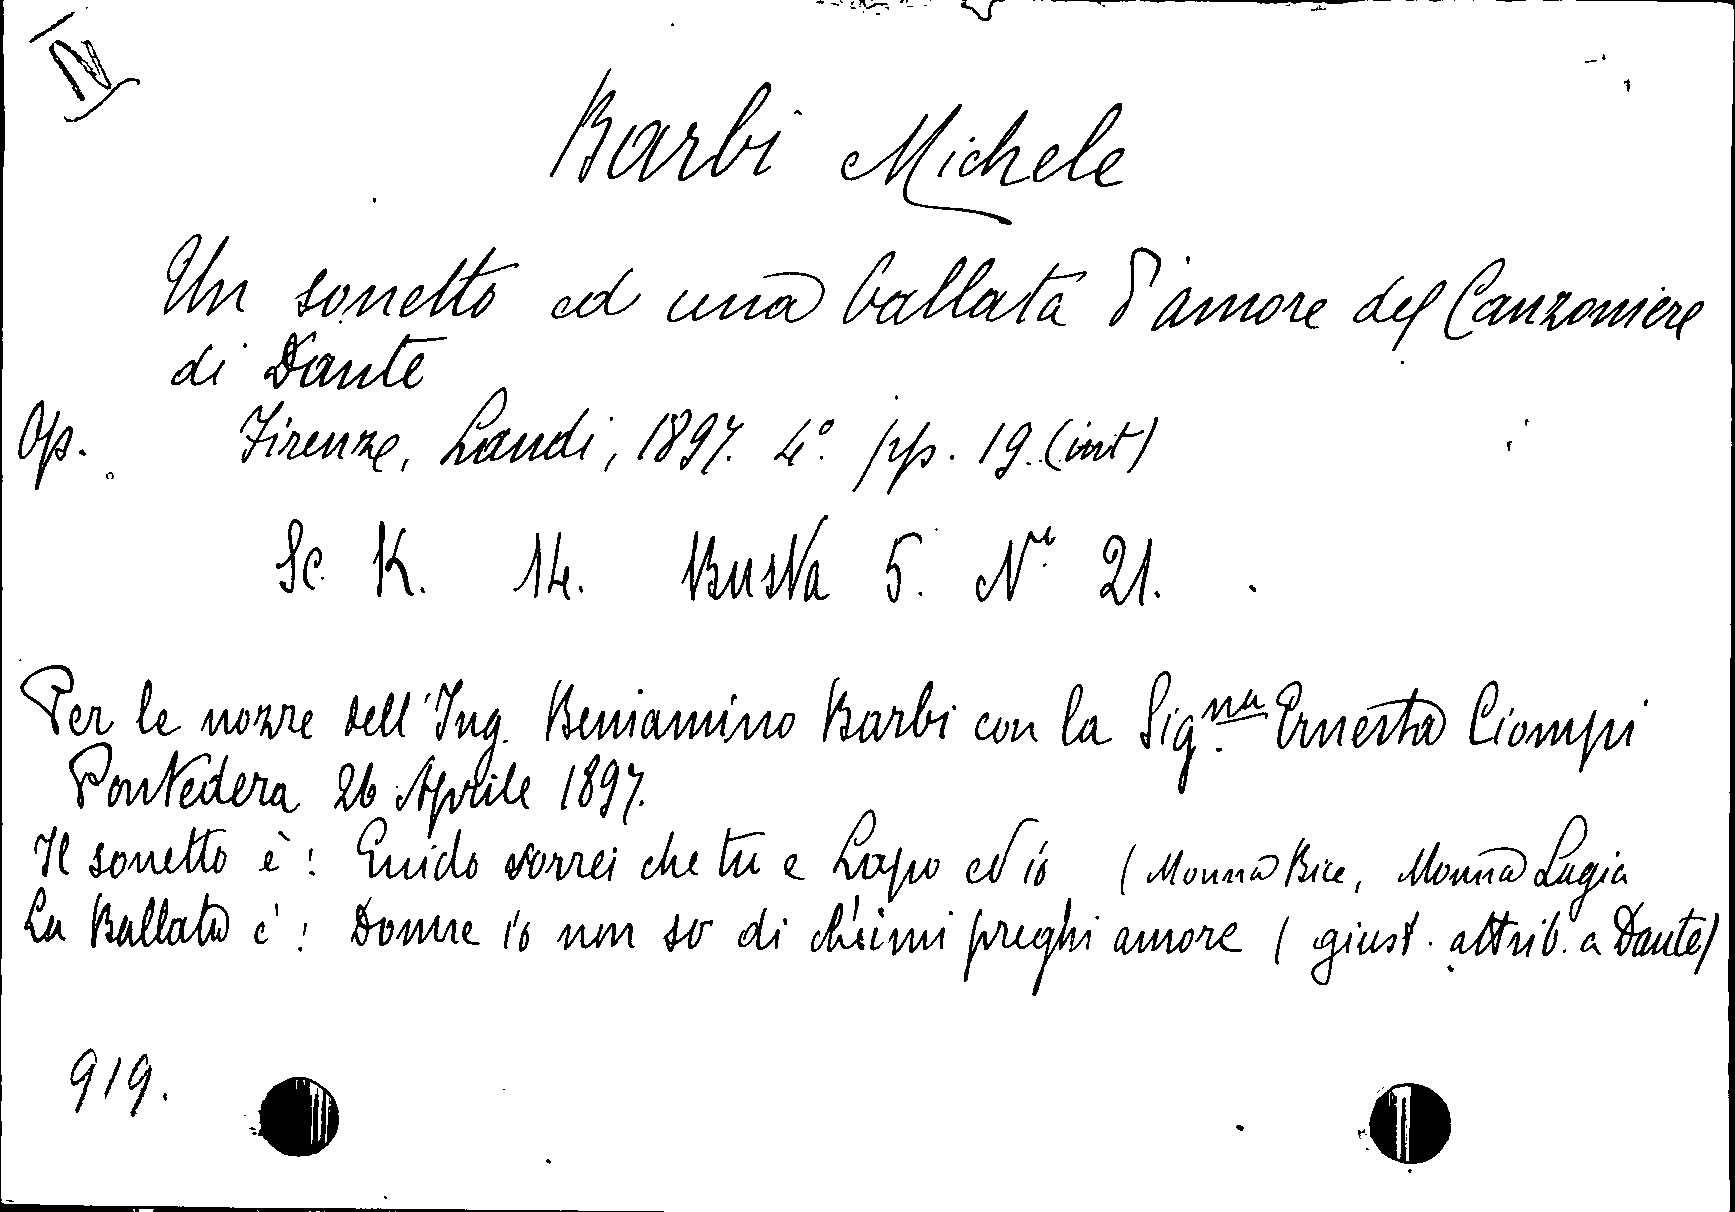 IV
Barbi Michele
Un sonetto ed una ballata d'amore del Canzoniere
di Dante
Op. Firenze, Landi, 1897. 4° pp. 19. (int)
Sc. K. 14. Busta 5. N.° 21.
Per le nozze dell'Ing. Beniamino Barbi con la Sig.na Ernesta Ciompi
Pontedera 26 Aprile 1897.
Il sonetto è: Guido vorrei che tu e Lapo ed io (Monna Bice, Monna Lagia
La Ballata è: Donne io non so di che imi preghi amore (giust. attrib. a Dante)
919.